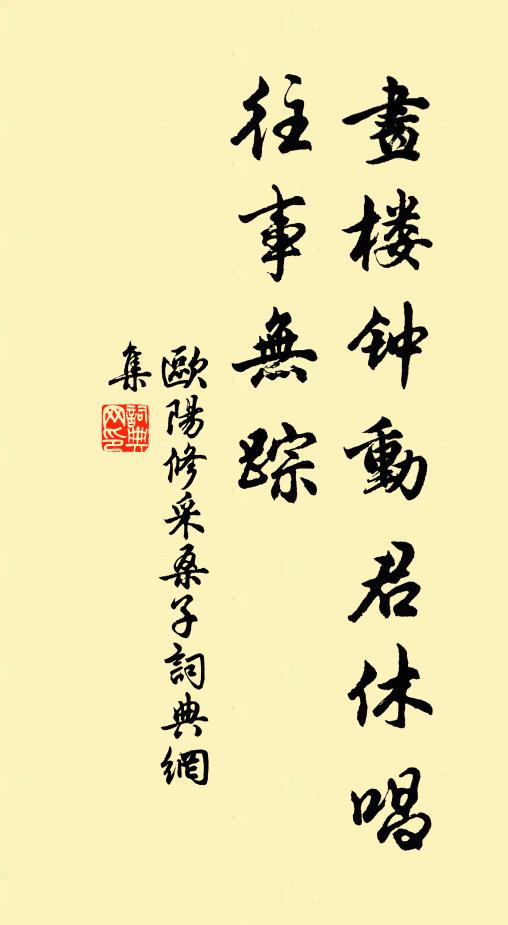 畫楼钟動君休唱
往事無踪
歐陽修采桑子詞典網
集
詞典网印